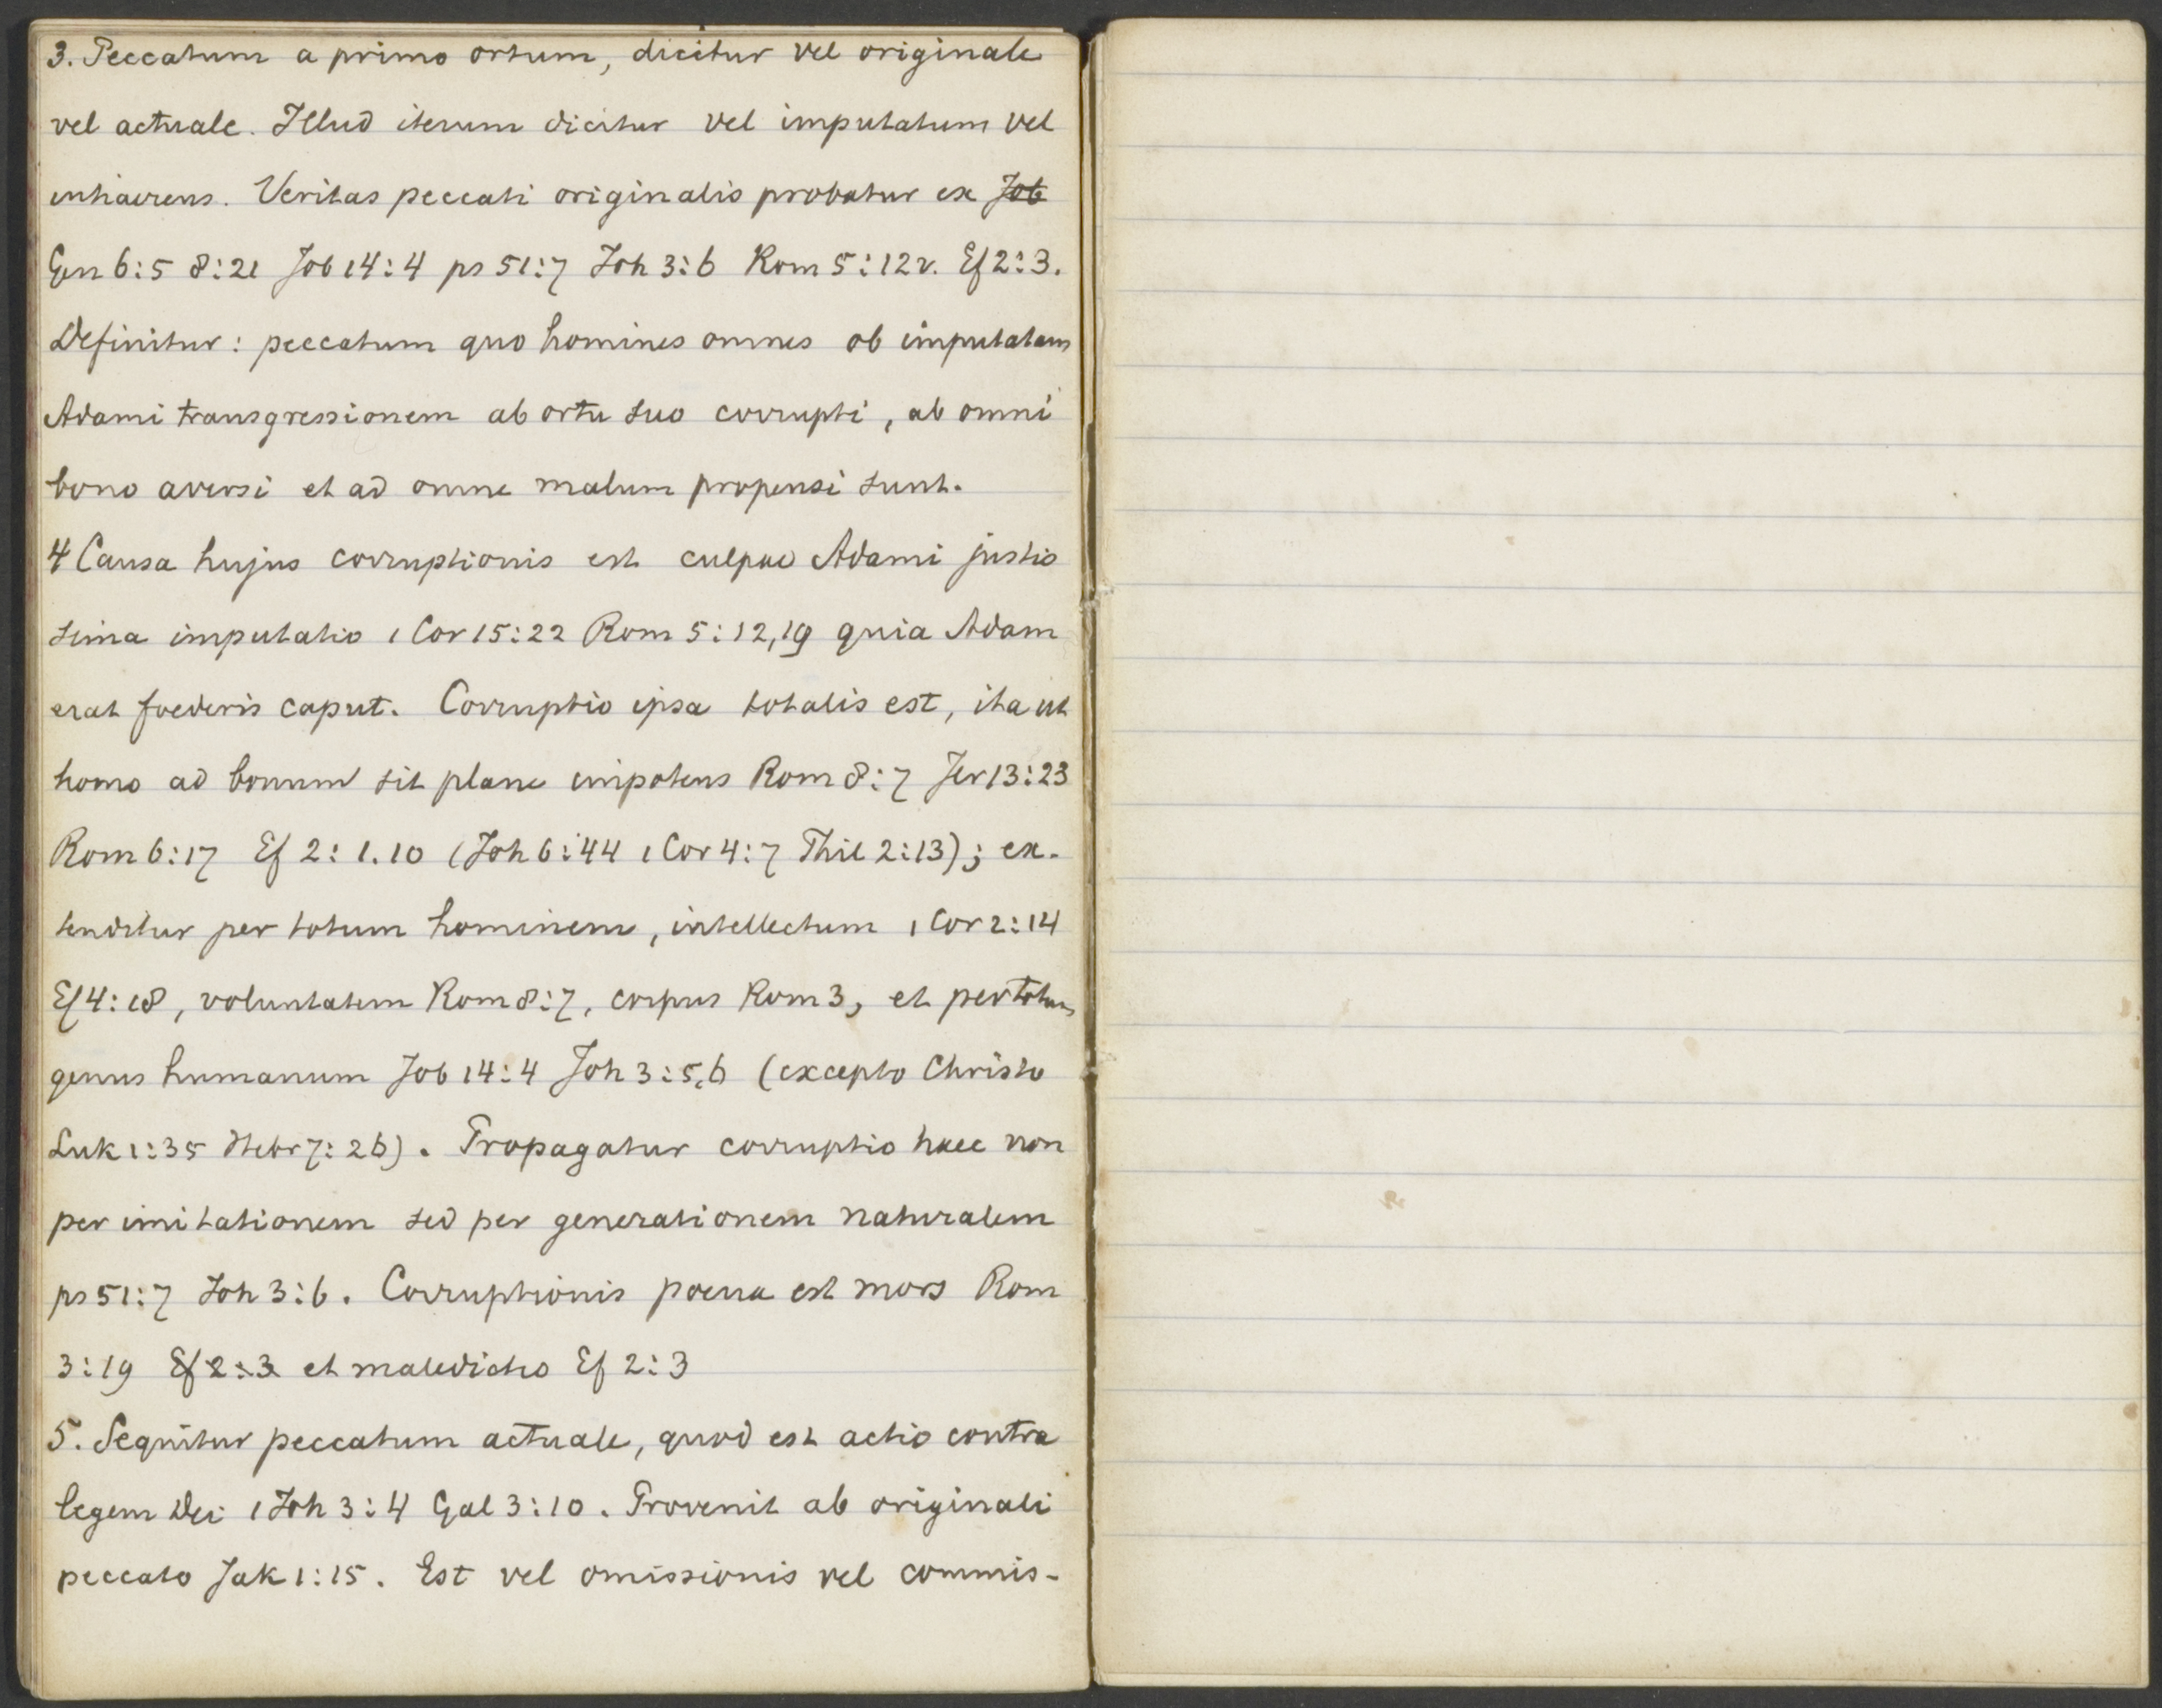 3. Peccatum a primo ortum, dicitur vel originale
vel actuale. Illud iterum dicitur vel imputatum vel
inhaerens. Veritas peccati originalis probatur ex Job
Gen 6:5 8:21 Job 14:4 ps 51:7 Joh 3:6 Rom 5:12v. Ef 2:3.
Definitur: peccatum quo homines omnes ob imputatam
Adami transgressionem ab ortu suo corrupti, ab omni
bono aversi et ad omne malum propensi sunt.
4 Causa hujus corruptionis est culpae Adami justis
sima imputatio 1 Cor 15:22 Rom 5:12,19 quia Adam
erat foederis caput. Corruptio ipsa totalis est, ita ut
homo ad bonum sit plane impotens Rom 8:7 Jer 13:23
Rom 6:17 Ef 2:1.10 (Joh 6:44 1 Cor 4:7 Phil 2:13); ex-
tenditur per totum hominem, intellectum 1 Cor 2:14
Ef 4:18, voluntatem Rom 8:7, corpus Rom 3, et per totum
genus humanum Job 14:4 Joh 3:5,6 (excepto Christo
Luk 1:35 Hebr 7:26). Propagatur corruptio haec non
per imitationem sed per generationem naturalem
ps 51:7 Joh 3:6. Corruptionis poena est mors Rom
3:19 Ef 2:3 et maledictio Ef 2:3
5. Sequitur peccatum actuale, quod est actio contra
legem Dei 1 Joh 3:4 Gal 3:10. Provenit ab originali
peccato Jak 1:15. Est vel omissionis vel commis-